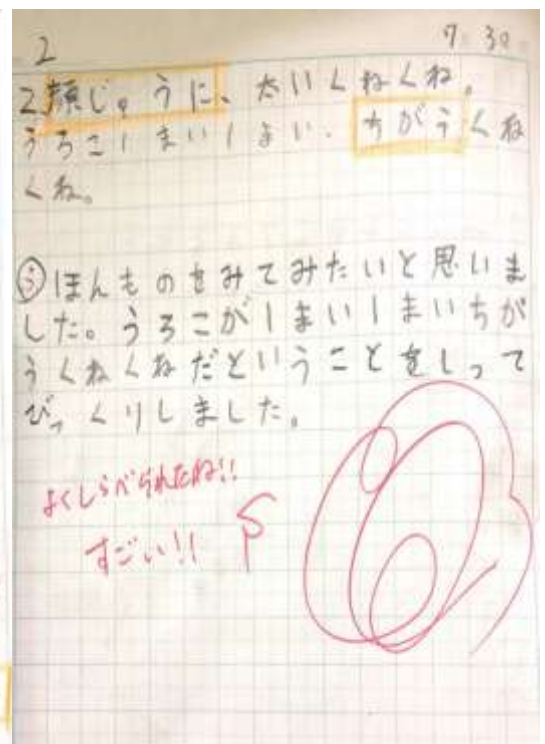 2
9. 30
2.顔じゅうに、太いくねくね。
うろこ1まい1まい、ちがうくね
くね。
ふほんものをみてみたいと思いま
した。うろこが1まい1まいちが
うくねくねだということをしって
びっくりしました。
よくしらべられたね!!
すごい!!